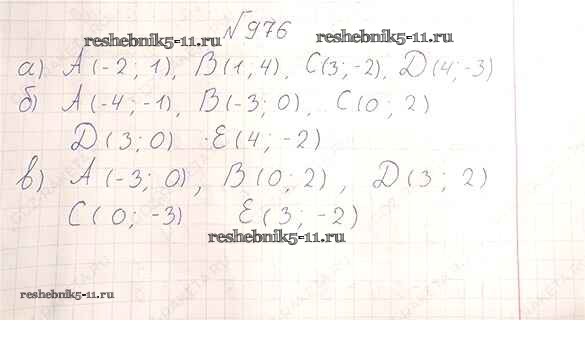 №976
reshebnik5-11.ru reshebnik5-11.ru
а) A(-2; 1), B(1, 4), C(3; -2), D(4; -3)
б) A(-4; -1), B(-3; 0), C(0; 2)
D(3; 0) E(4; -2)
в) A(-3; 0), B(0; 2), D(3; 2)
C(0; -3) E(3; -2)
reshebnik5-11.ru
reshebnik5-11.ru